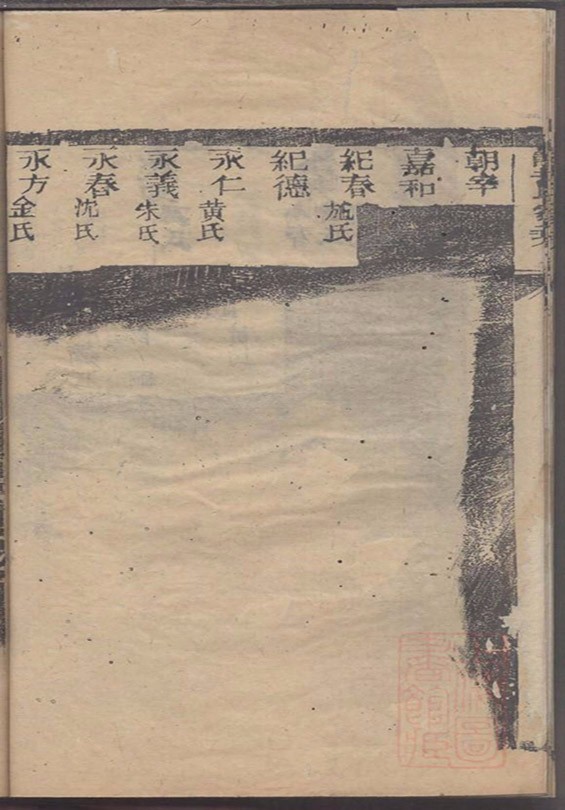 朝幸
嘉和
紀春 施氏
紀德
永仁 黄氏
永義 朱氏
永春 沈氏
永方 金氏